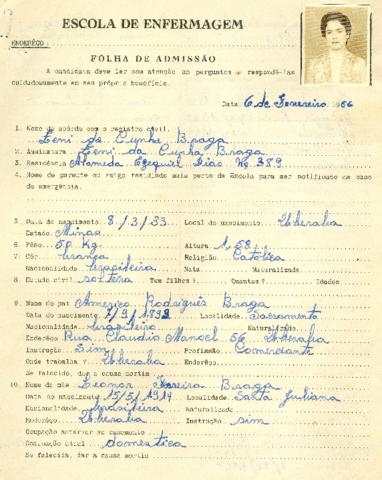 ESCOLA DE ENFERMAGEM
ENDERÊÇO
FOLHA DE ADMISSÃO
A candidata deve ler com atenção as perguntas e respondê-las
cuidadosamente em seu próprio benefício.
Data 6 de Fevereiro 1956
1. Nome de acôrdo com o registro civil.
Leni da Cunha Braga
2. Assinatura Leni da Cunha Braga
3. Residência Alameda Ezequiel Dias No. 389
4. Nome de parente ou amigo residindo mais perto da Escola para ser notificado em caso
de emergência.
5 Data do nascimento 8/3/33 Local do nascimento Uberaba
Estado Minas
6. Pêso 50 Kg. Altura 1,58
7. Côr branca Religião Católica
Nacionalidade brasileira Nata Naturalizada
8. Estado civil solteira Tem filhos? Quantos? Idades
9. Nome do pai Americo Rodrigues Braga
Data do nascimento 7/9/1898 Localidade Sacramento
Nacionalidade brasileiro Naturalizado
Endereço Rua Claudio Manoel 56 Uberaba
Instrução Sim Profissão Comerciante
Onde trabalha? Uberaba Endereço
Se falecido, dar a causa mortis
10. Nome da mãe Leonor Braga
Data do nascimento 15/5/1919 Localidade Santa Juliana
Nacionalidade brasileira Naturalizada
Endereço Uberaba Instrução sim
Ocupação anterior ao casamento
Ocupação atual doméstica
Se falecida, dar a causa mortis